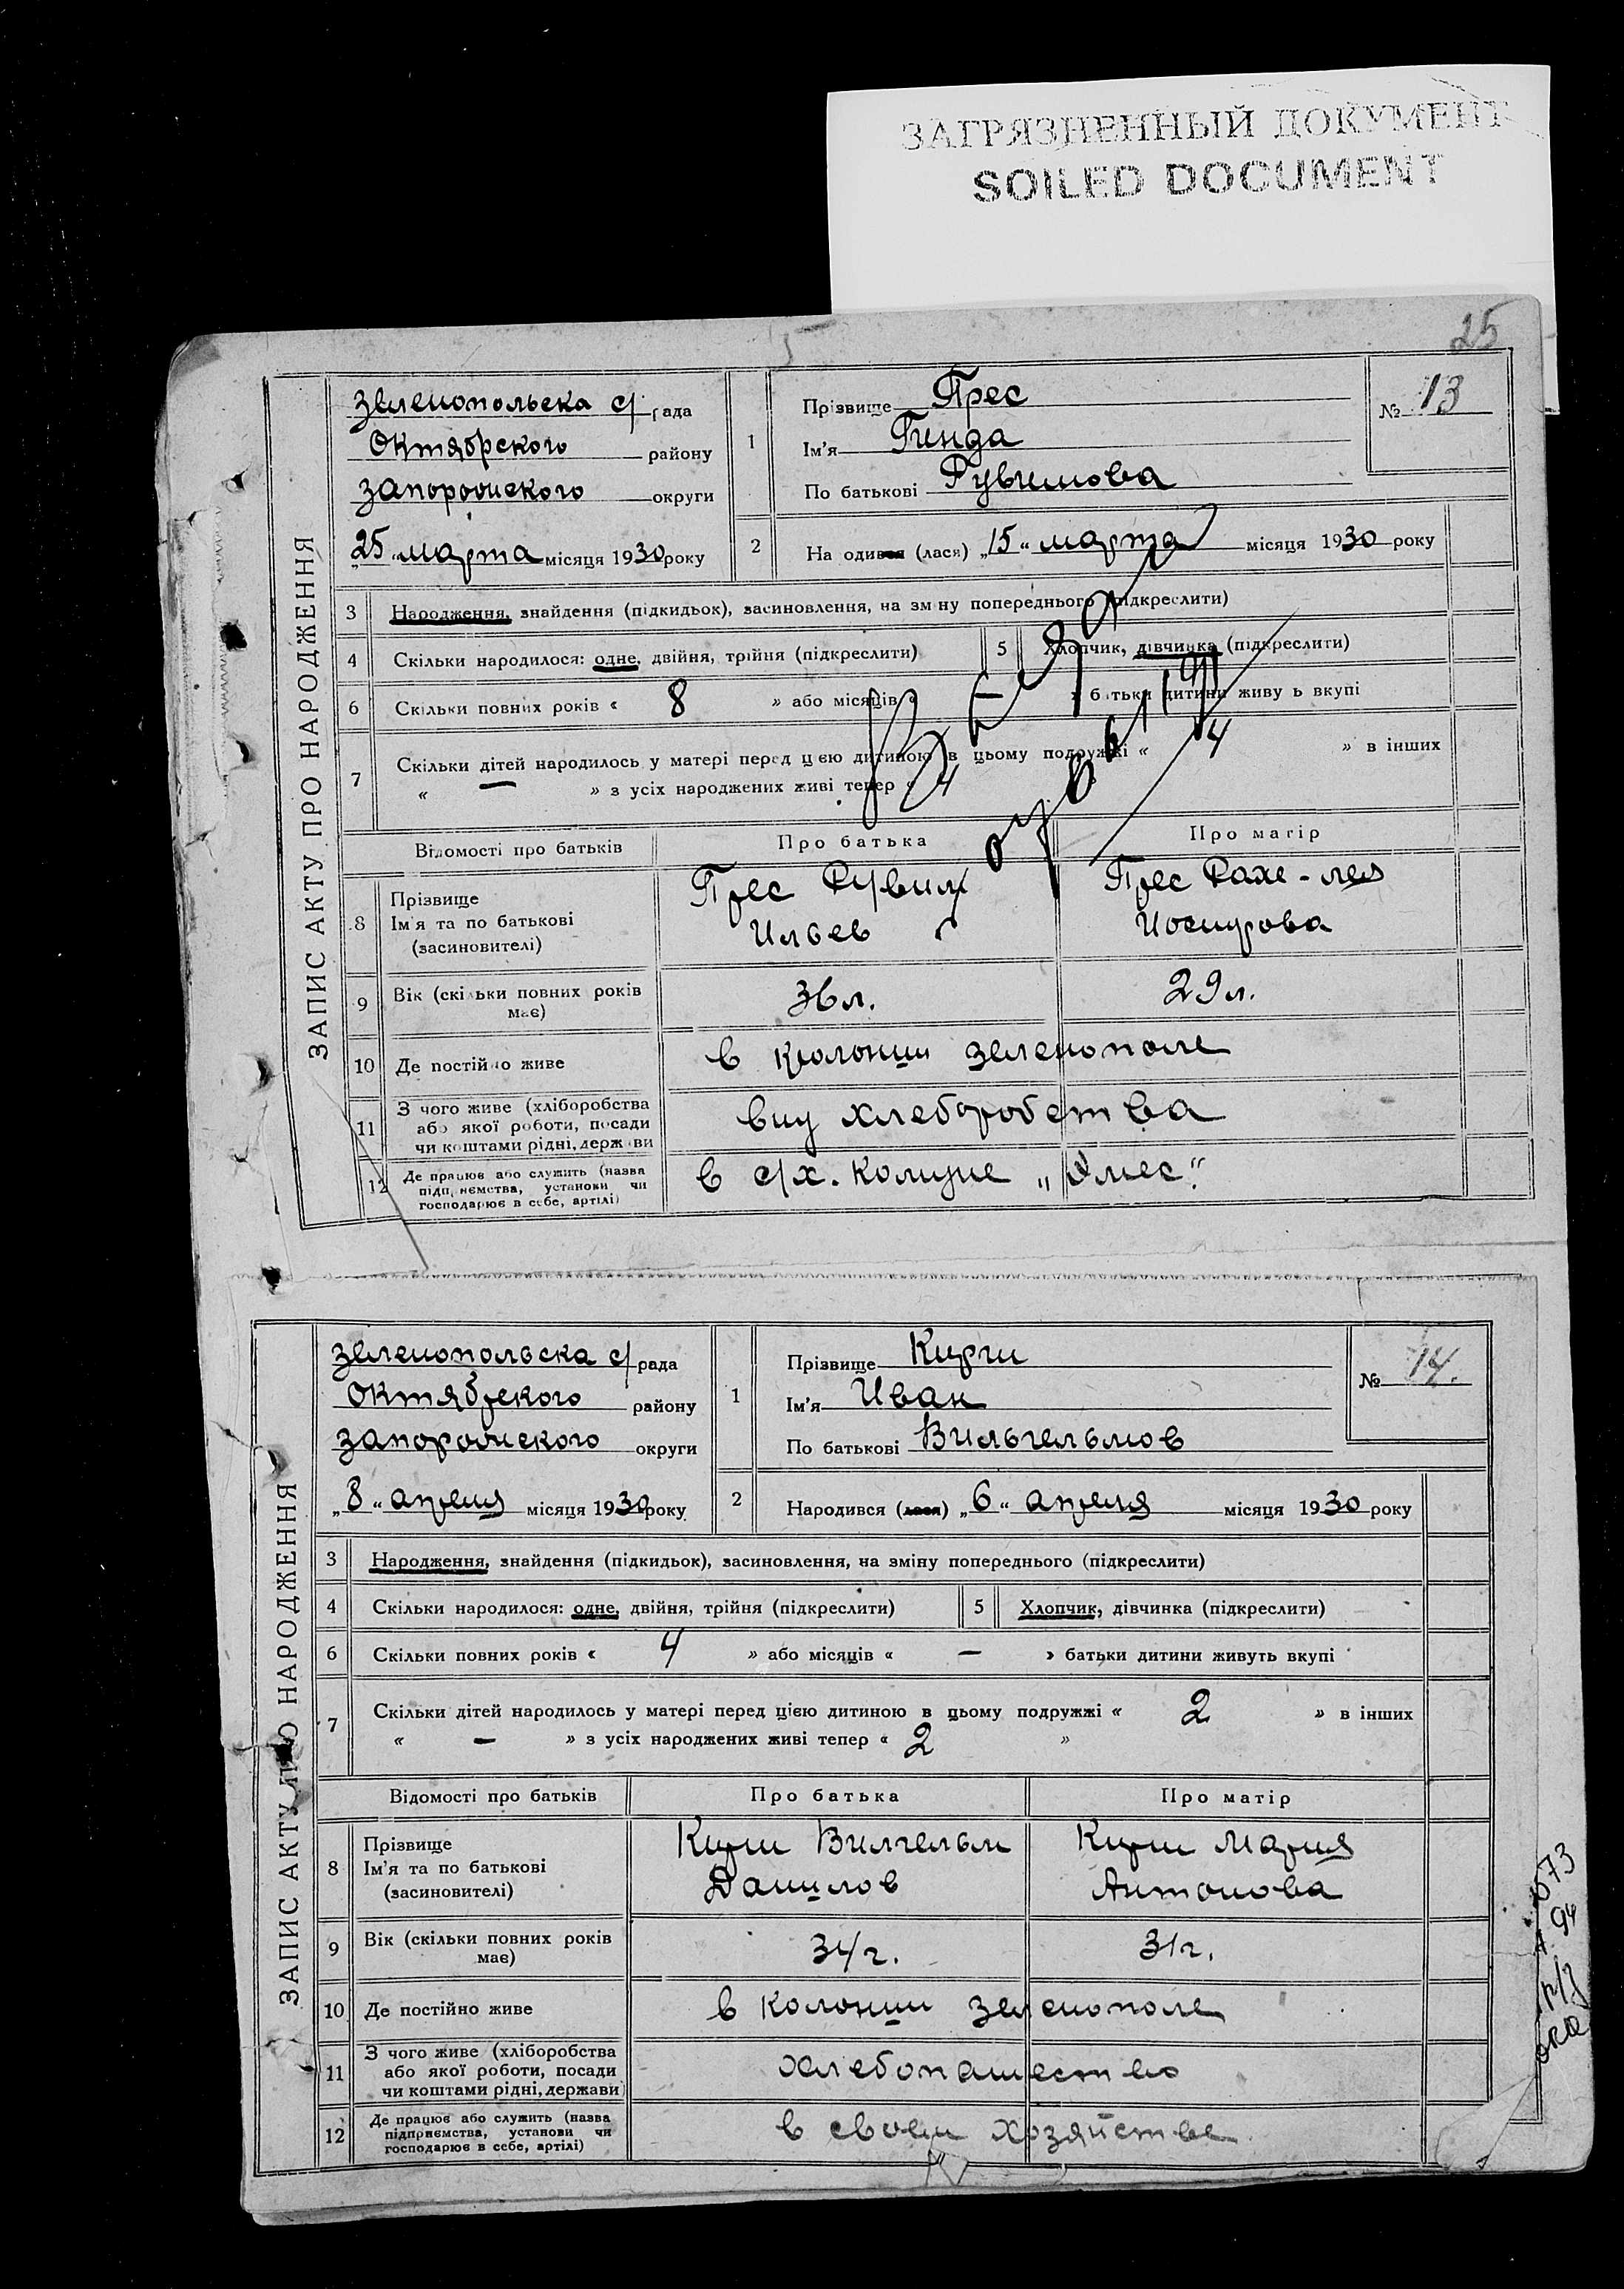 ЗАГРЯЗНЕННЫЙ ДОКУМЕНТ
SOILED DOCUMENT
25
ЗАПИС АКТУ ПРО НАРОДЖЕННЯ
Зеленопольска с/рада
Октябрского району
Запорожского округи
„25“ марта місяця 1930 року
1
Прізвище Прес
Ім'я Гинда
По батькові Рувимова
№ 13
2
Народився (лася) „15“ марта місяця 1930 року
3 Народження, знайдення (підкидьок), засиновлення, на зміну попереднього (підкреслити)
4 Скільки народилося: одне, двійня, трійня (підкреслити) 5 Хлопчик, дівчинка (підкреслити)
6 Скільки повних років « 8 » або місяців « — » батьки дитини живуть вкупі
7 Скільки дітей народилось у матері перед цією дитиною в цьому подружжі « 4 » в інших
« — » з усіх народжених живі тепер « 4
Відомості про батьків Про батька Про матір
8 Прізвище
Ім'я та по батькові
(засиновителі)
Прес Рувим
Ильев
Прес Рахе-лея
Иосифова
9 Вік (скільки повних років має) 36 л. 29 л.
10 Де постійно живе в колонии Зеленополе
11 З чого живе (хліборобства
або якої роботи, посади
чи коштами рідні, держави
хлеборобства
12 Де працює або служить (назва
підприємства, установи чи
господарює в себе, артілі)
в с/х. Комуне „Эмес“
ЗАПИС АКТУ ПРО НАРОДЖЕННЯ
Зеленопольска с/рада
Октябрского району
Запорожского округи
„8“ апреля місяця 1930 року
1
Прізвище Кирш
Ім'я Иван
По батькові Вильгельмов
№ 14.
2
Народився (лася) „6“ апреля місяця 1930 року
3 Народження, знайдення (підкидьок), засиновлення, на зміну попереднього (підкреслити)
4 Скільки народилося: одне, двійня, трійня (підкреслити) 5 Хлопчик, дівчинка (підкреслити)
6 Скільки повних років « 4 » або місяців « — » батьки дитини живуть вкупі
7 Скільки дітей народилось у матері перед цією дитиною в цьому подружжі « 2 » в інших
« — » з усіх народжених живі тепер « 2 »
Відомості про батьків Про батька Про матір
8 Прізвище
Ім'я та по батькові
(засиновителі)
Кирш Вилгельм
Данилов
Кирш Мария
Антонова
9 Вік (скільки повних років має) 34 г. 31 г.
10 Де постійно живе в колонии Зеленополе
11 З чого живе (хліборобства
або якої роботи, посади
чи коштами рідні, держави)
хлебопашество
12 Де працює або служить (назва
підприємства, установи чи
господарює в себе, артілі)
в своем хозяйстве